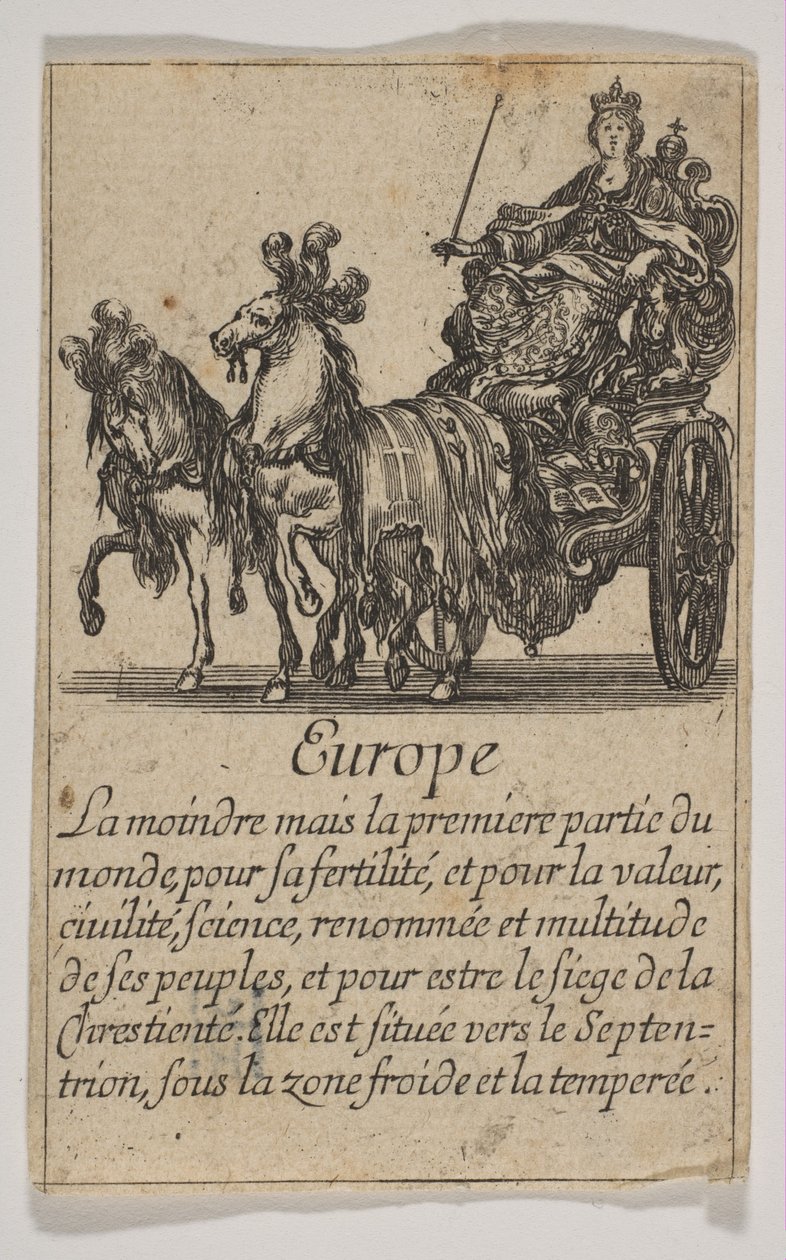 Europe
La moindre mais la premiere partie du
monde, pour sa fertilité, et pour la valeur,
ciuilité, science, renommée et multitude
de ses peuples, et pour estre le siege de la
Chrestienté. Elle est située vers le Septen=
trion, sous la zone froide et la temperée.